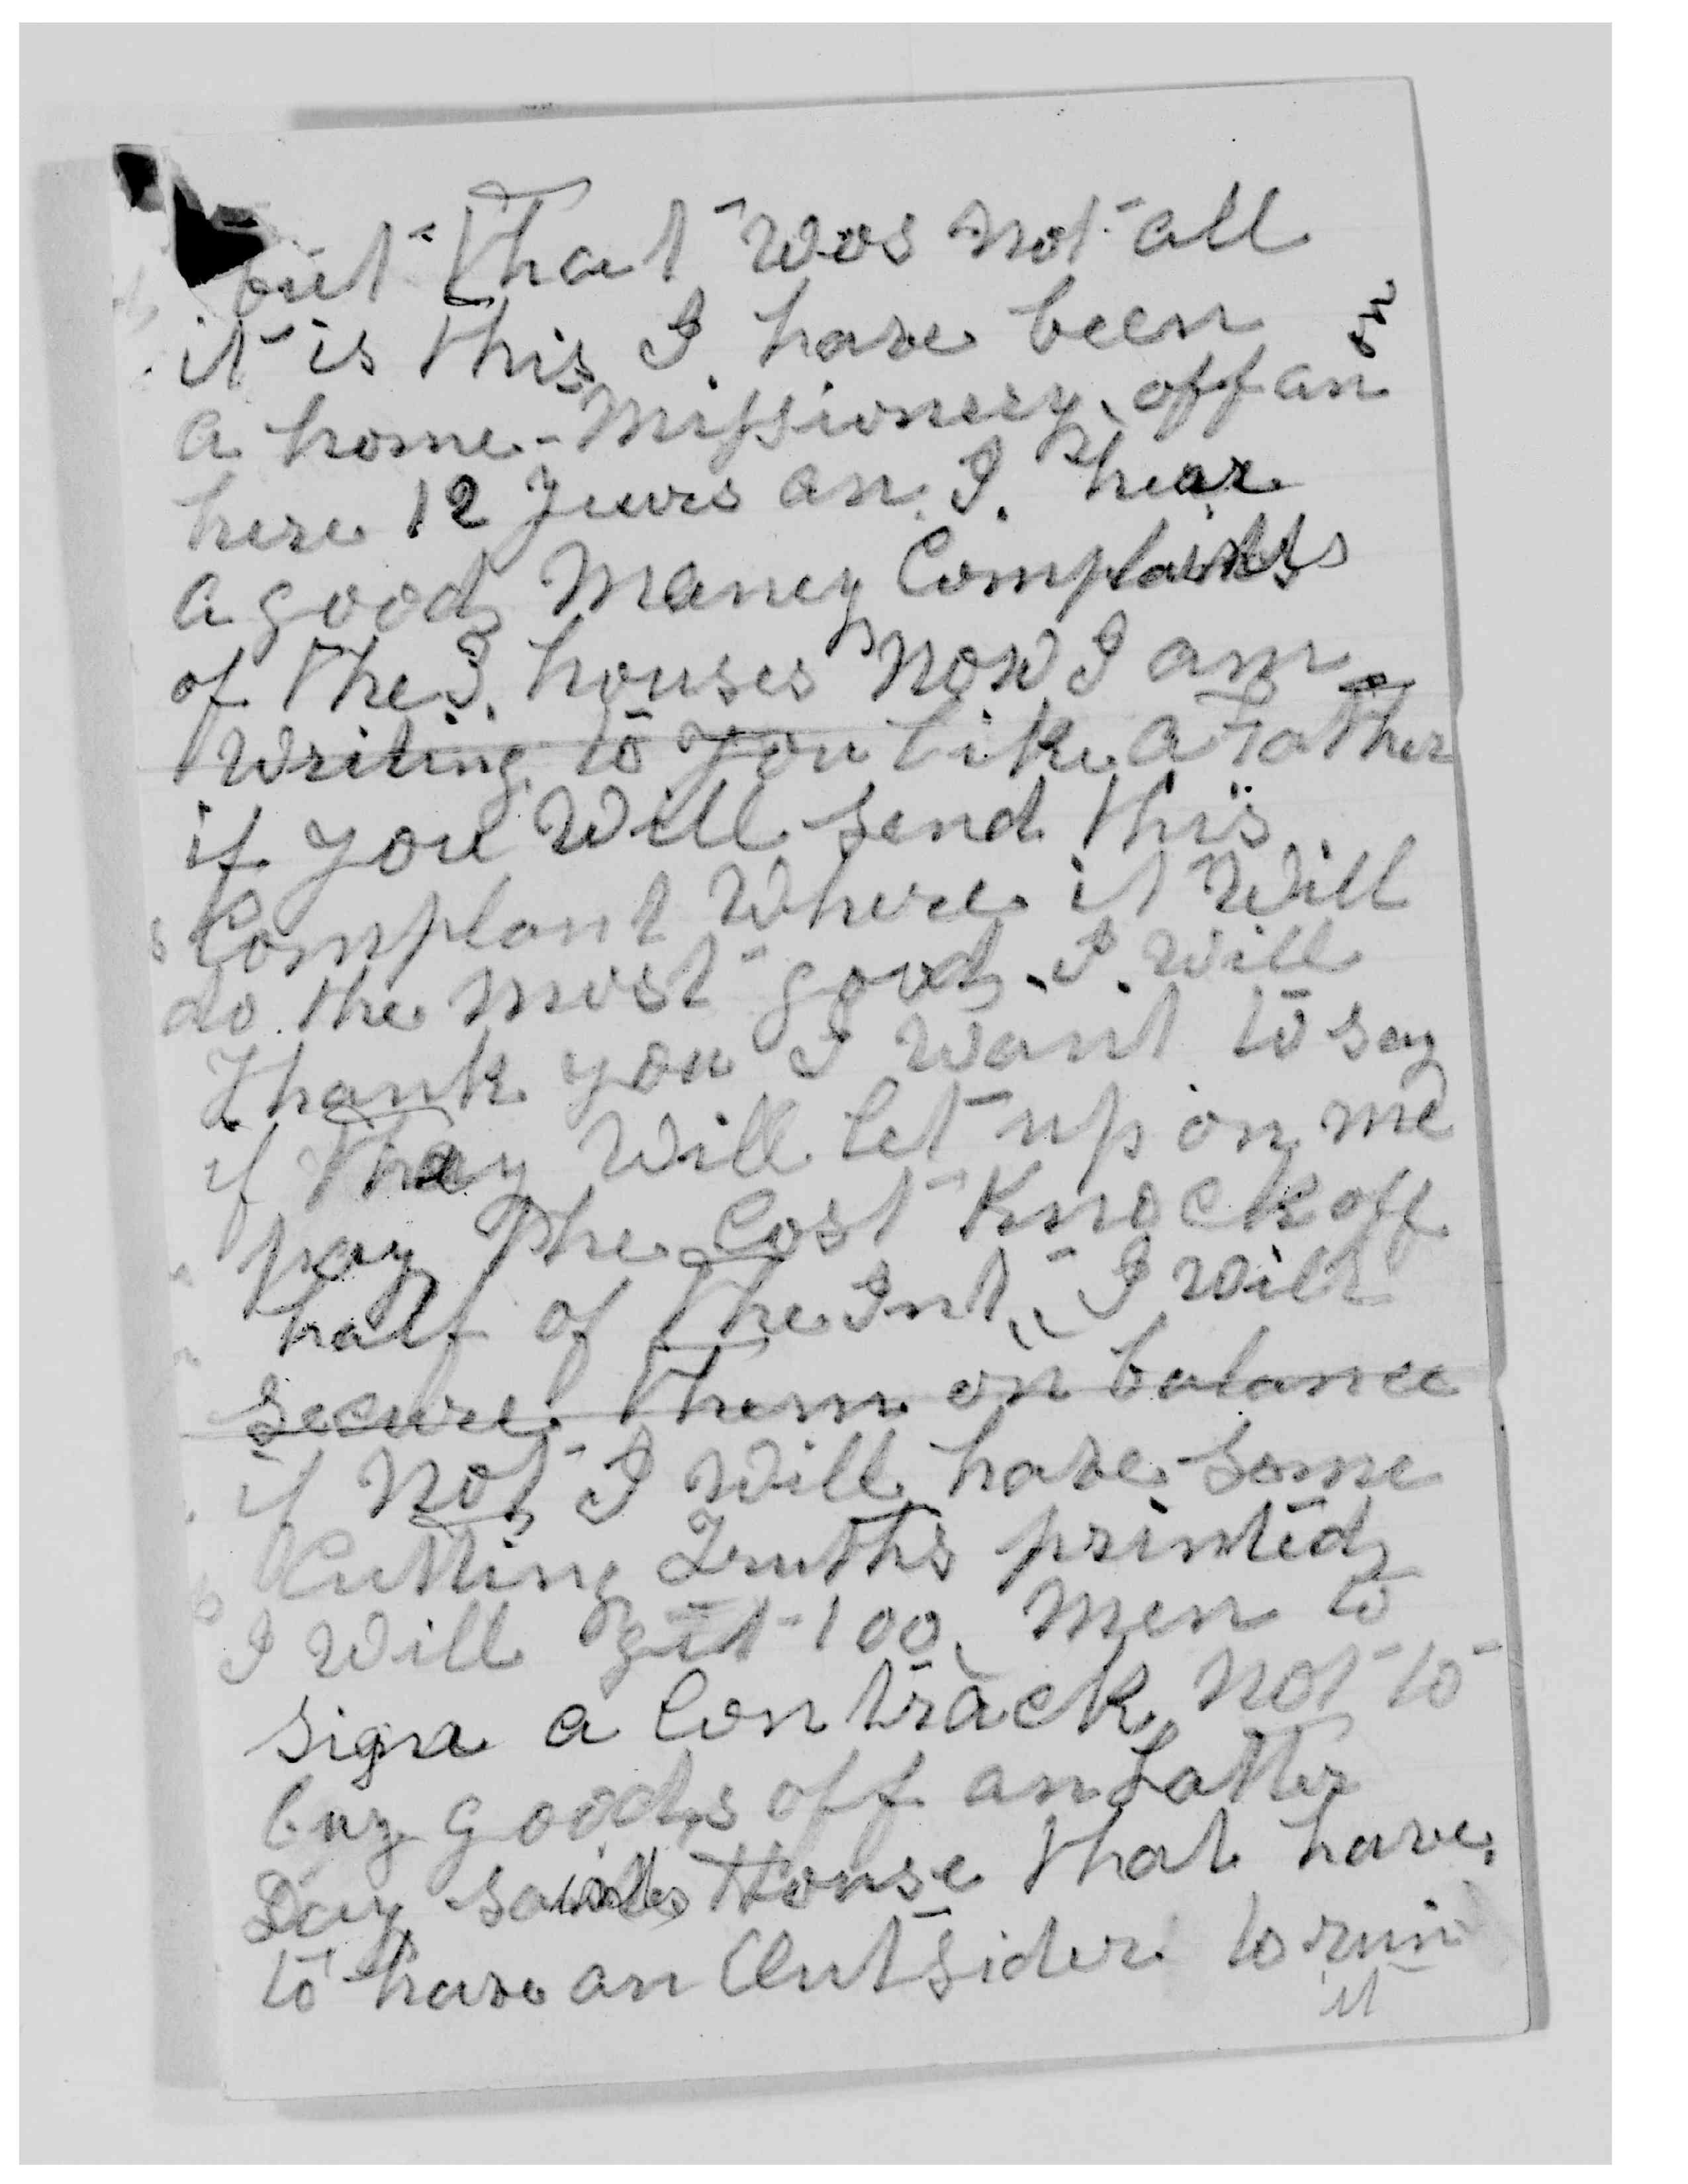 but That was not all
it is this I have been
a home-Missionery off an on
here 12 Years an. I. hear
a good Maney Complaints
of the 3. houses now I am
Writing to you like a Father
if you Will send this
Complant Where it Will
do the most good. I. will
Thank you I want to say
if Thay Will let up on me
pay The Cost Knock off
half of The Int. I will
secure them on balance
if not I will have some
Cutting Truths printed
I Will git 100 Men to
sign a Contrack not to
buy goods off an Latter
Day saints House that have
to have an Outsider to run
it